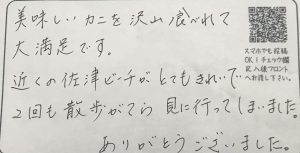 美味しいカニを沢山食べれて
大満足です。
近くの佐津ビーチが、とてもきれいで
2回も散歩がてら見に行ってしまいました。
ありがとうございました。
スマホでも投稿
OK!チェック欄
記入後フロント
へお渡し下さい。